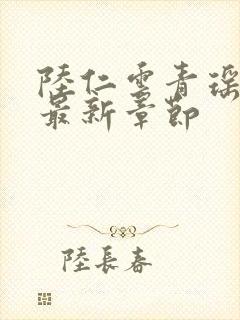 陸仁雲青瑶
最新章節
陸長春